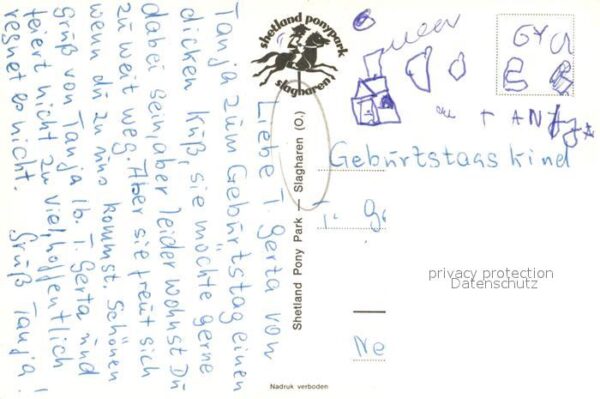 Liebe T. Gerta von
Tanja zum Geburtstag einen
dicken Kuß, sie möchte gerne
dabei sein, aber leider wohnst Du
zu weit weg. Aber sie freut sich
wenn du zu uns kommst. Schönen
Gruß von Tanja lb. T. Gerta und
feiert nicht zu viel, hoffentlich
regnet es nicht. Gruß Tanja!
shetland ponypark
slagharen
Shetland Pony Park — Slagharen (O.)
Nadruk verboden
Geburtstagskind
T. Ge
Ne
privacy protection
Datenschutz